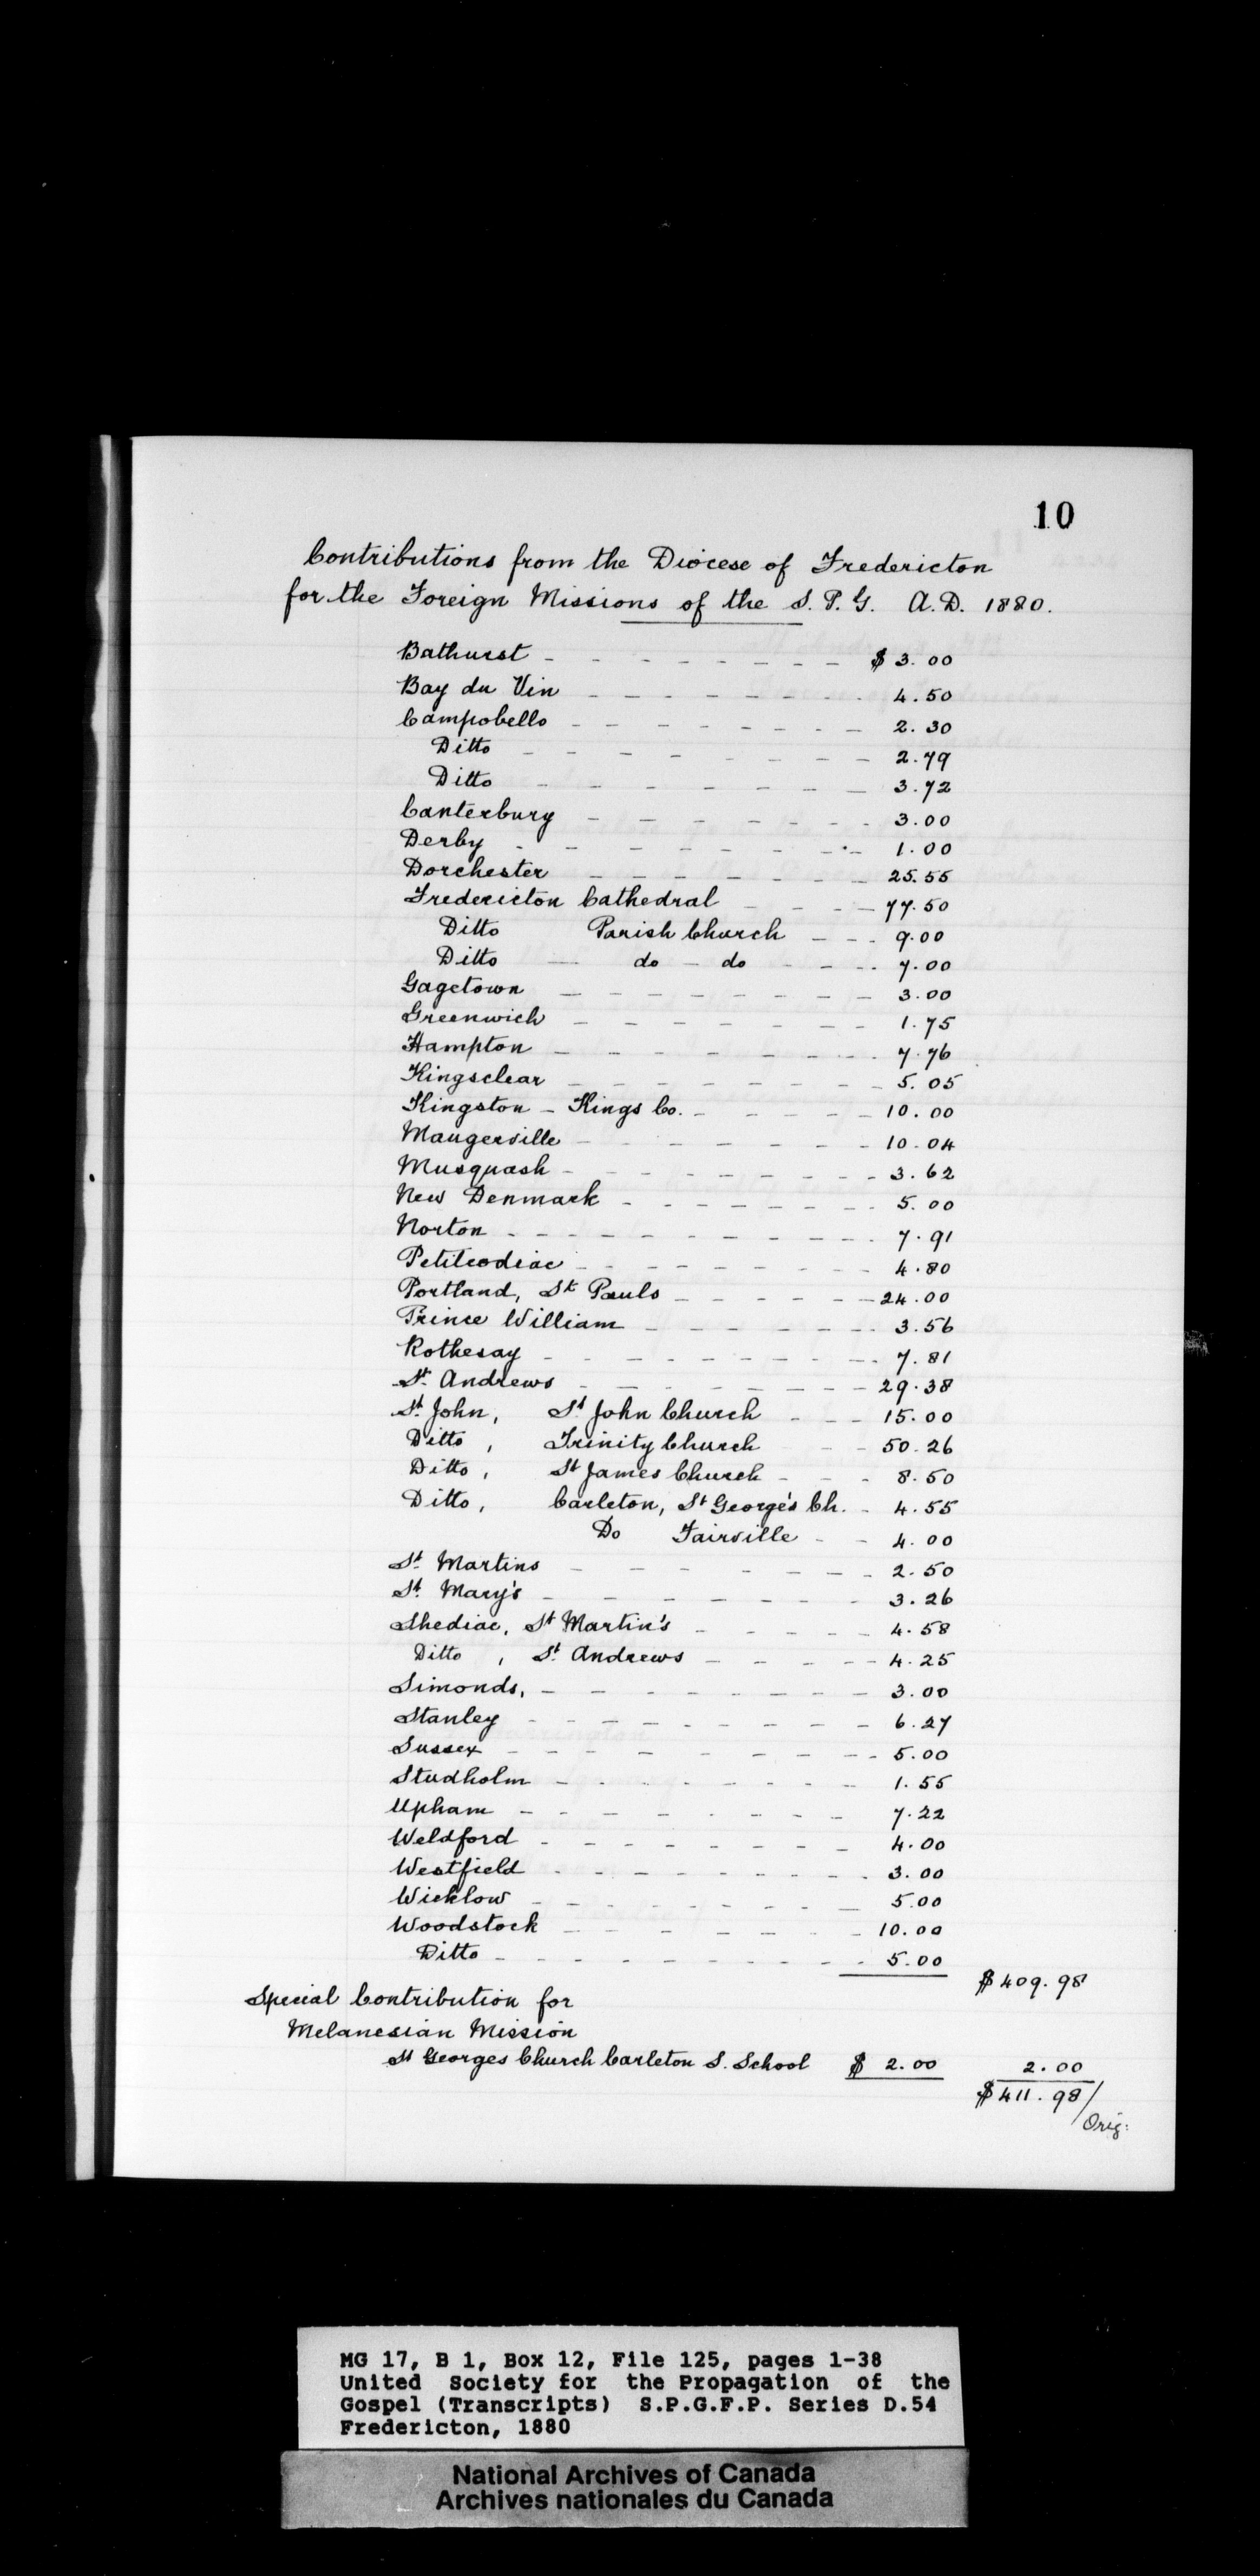 10
Contributions from the Diocese of Fredericton
for the Foreign Missions of the S. P. G. A.D. 1880.
Bathurst - - - - - - - - - $ 3.00
Bay du Vin - - - - - - - - 4.50
Campobello - - - - - - - - 2.30
Ditto - - - - - - - - 2.79
Ditto - - - - - - - - 3.72
Canterbury - - - - - - - - 3.00
Derby - - - - - - - - 1.00
Dorchester - - - - - - - - 25.55
Fredericton Cathedral - - - - 77.50
Ditto Parish Church - - - 9.00
Ditto - do - do - - - 7.00
Gagetown - - - - - - - - 3.00
Greenwich - - - - - - - - 1.75
Hampton - - - - - - - - 7.76
Kingsclear - - - - - - - - 5.05
Kingston - Kings Co. - - - - - 10.00
Maugerville - - - - - - - 10.04
Musquash - - - - - - - - 3.62
New Denmark - - - - - - - 5.00
Norton - - - - - - - - - - 7.91
Petitcodiac - - - - - - - - 4.80
Portland, St Pauls - - - - - - 24.00
Prince William - - - - - - - 3.56
Rothesay - - - - - - - - - 7.81
St. Andrews - - - - - - - - 29.38
St. John, St John Church - - - 15.00
Ditto , Trinity Church - - 50.26
Ditto , St James Church - - - 8.50
Ditto , Carleton, St George's Ch. - 4.55
Do Fairville - - 4.00
St. Martins - - - - - - - 2.50
St. Mary's - - - - - - - 3.26
Shediac, St Martin's - - - - - 4.58
Ditto , St. Andrews - - - - - 4.25
Simonds, - - - - - - - - 3.00
Stanley - - - - - - - - 6.27
Sussex - - - - - - - - - 5.00
Studholm - - - - - - - - 1.55
Upham - - - - - - - - 7.22
Weldford - - - - - - - - 4.00
Westfield - - - - - - - - 3.00
Wicklow - - - - - - - - 5.00
Woodstock - - - - - - - 10.00
Ditto - - - - - - - - - 5.00
$ 409.98
Special Contribution for
Melanesian Mission
St Georges Church Carleton S. School $ 2.00 2.00
$ 411.98/
Orig:
MG 17, B 1, Box 12, File 125, pages 1-38
United Society for the Propagation of the
Gospel (Transcripts) S.P.G.F.P. Series D.54
Fredericton, 1880
National Archives of Canada
Archives nationales du Canada